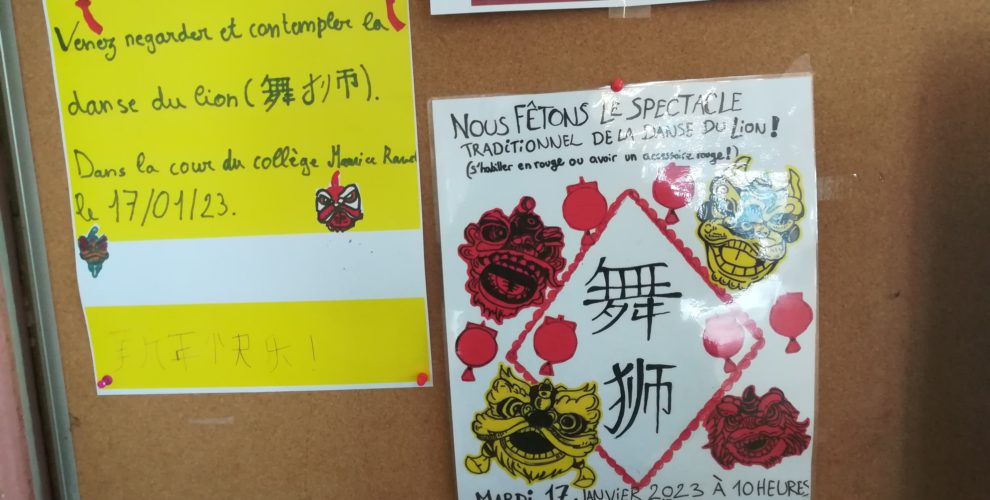 Venez regarder et contempler la
danse du lion (舞狮).
Dans la cour du collège Maurice Ravel
le 17/01/23.
年快乐!
NOUS FÊTONS LE SPECTACLE
TRADITIONNEL DE LA DANSE DU LION !
(s'habiller en rouge ou avoir un accessoire rouge !)
舞
狮
MARDI 17 JANVIER 2023 À 10 HEURES